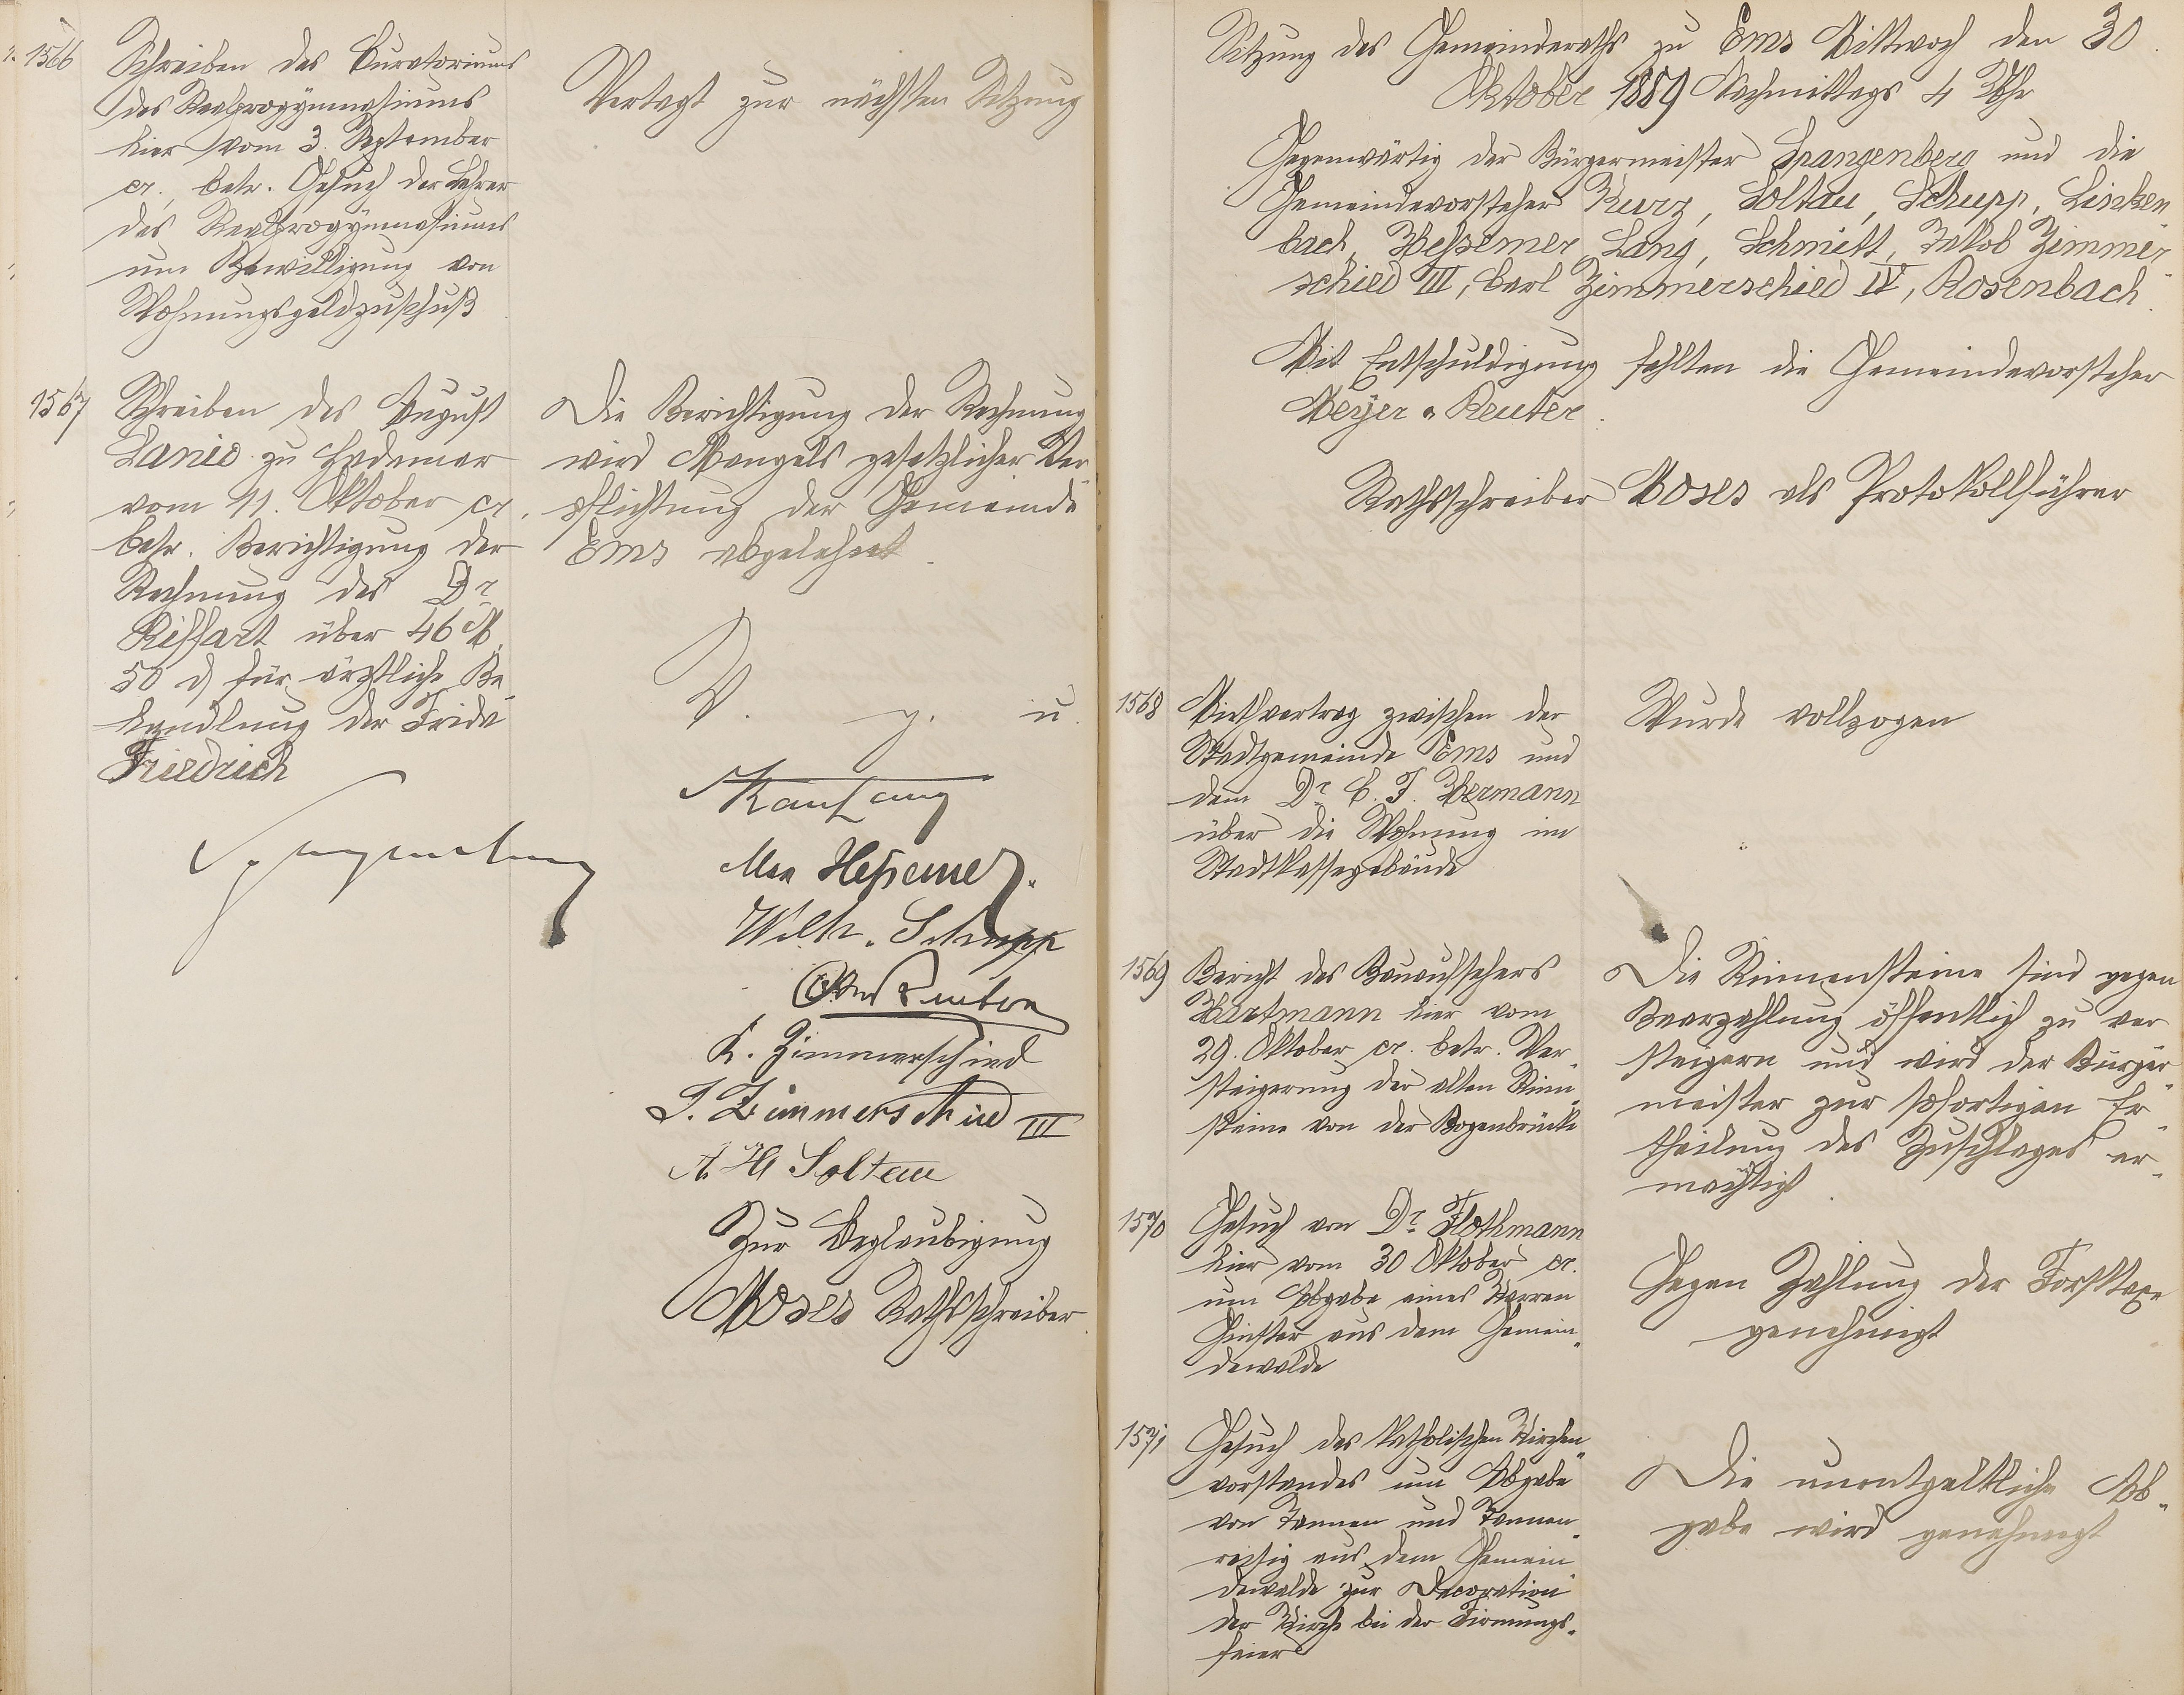 1566
Schreiben des Curatoriums
des Realprogÿmnasiums
hier vom 3. September
cr., betr. Gesuch der Lehrer
des Realprogÿmnasiums
um Bewilligung von
Wohnungsgeldzuschuß
Vertagt zur nächsten Sitzung
1567
Schreiben des August
Lanio zu Hadamar
vom 11. Oktober cr.
betr. Berichtigung der
Rechnung des Dr
Riffart über 46 M
50 d für ärztliche Be-
handlung der Frida
Friedrich
Die Berichtigung der Rechnung
wird Mangels gesetzlicher Ver-
pflichtung der Gemeinde
Ems abgelehnt.
V. g. u.
Spangenberg
Karl Lang
Max Heßemer.
Wilh. Schupp
Reuter
K. Zimmerschied
J. Zimmerschied III
A. H. Soltau
Zur Beglaubigung
Moses Rathsschreiber
Sitzung des Gemeinderaths zu Ems Mittwoch den 30
Oktober 1889 Nachmittags 4 Uhr
Gegenwärtig der Bürgermeister Spangenberg und die
Gemeindevorsteher Kurz, Soltau, Schupp, Linken
bach, Hessemer, Lang, Schmitt, Jakob Zimmer-
schied III, Carl Zimmerschied IV, Rosenbach.
Mit Entschuldigung fehlten die Gemeindevorsteher
Meÿer u Reuter.
Rathsschreiber Moses als Protokollführer
1568
Miethvertrag zwischen der
Stadtgemeinde Ems und
dem Dr C. F. Hermann
über die Wohnung im
Stadtkassegebäude
Wurde vollzogen
1569
Bericht des Bauaufsehers
Hartmann hier vom
29. Oktober cr. betr. Ver-
steigerung der alten Rinn-
steine von der Bogenbrücke
Die Rinnensteine sind gegen
Baarzahlung öffentlich zu ver
steigern und wird der Bürger-
meister zur sofortigen Er-
theilung des Zuschlages er-
mächtigt.
1570
Gesuch von Dr Flothmann
hier vom 30 Oktober cr.
um Abgabe eines Karren
Ginster aus dem Gemein-
dewalde
Gegen Zahlung der Forsttaxe
genehmigt
1571
Gesuch des katholischen Kirchen-
vorstandes um Abgabe
von Tannen und Tannen-
reisig aus dem Gemein-
dewalde zur Decoration
der Kirche bei der Firmungs-
feier
Die unentgeltliche Ab-
gabe wird genehmigt